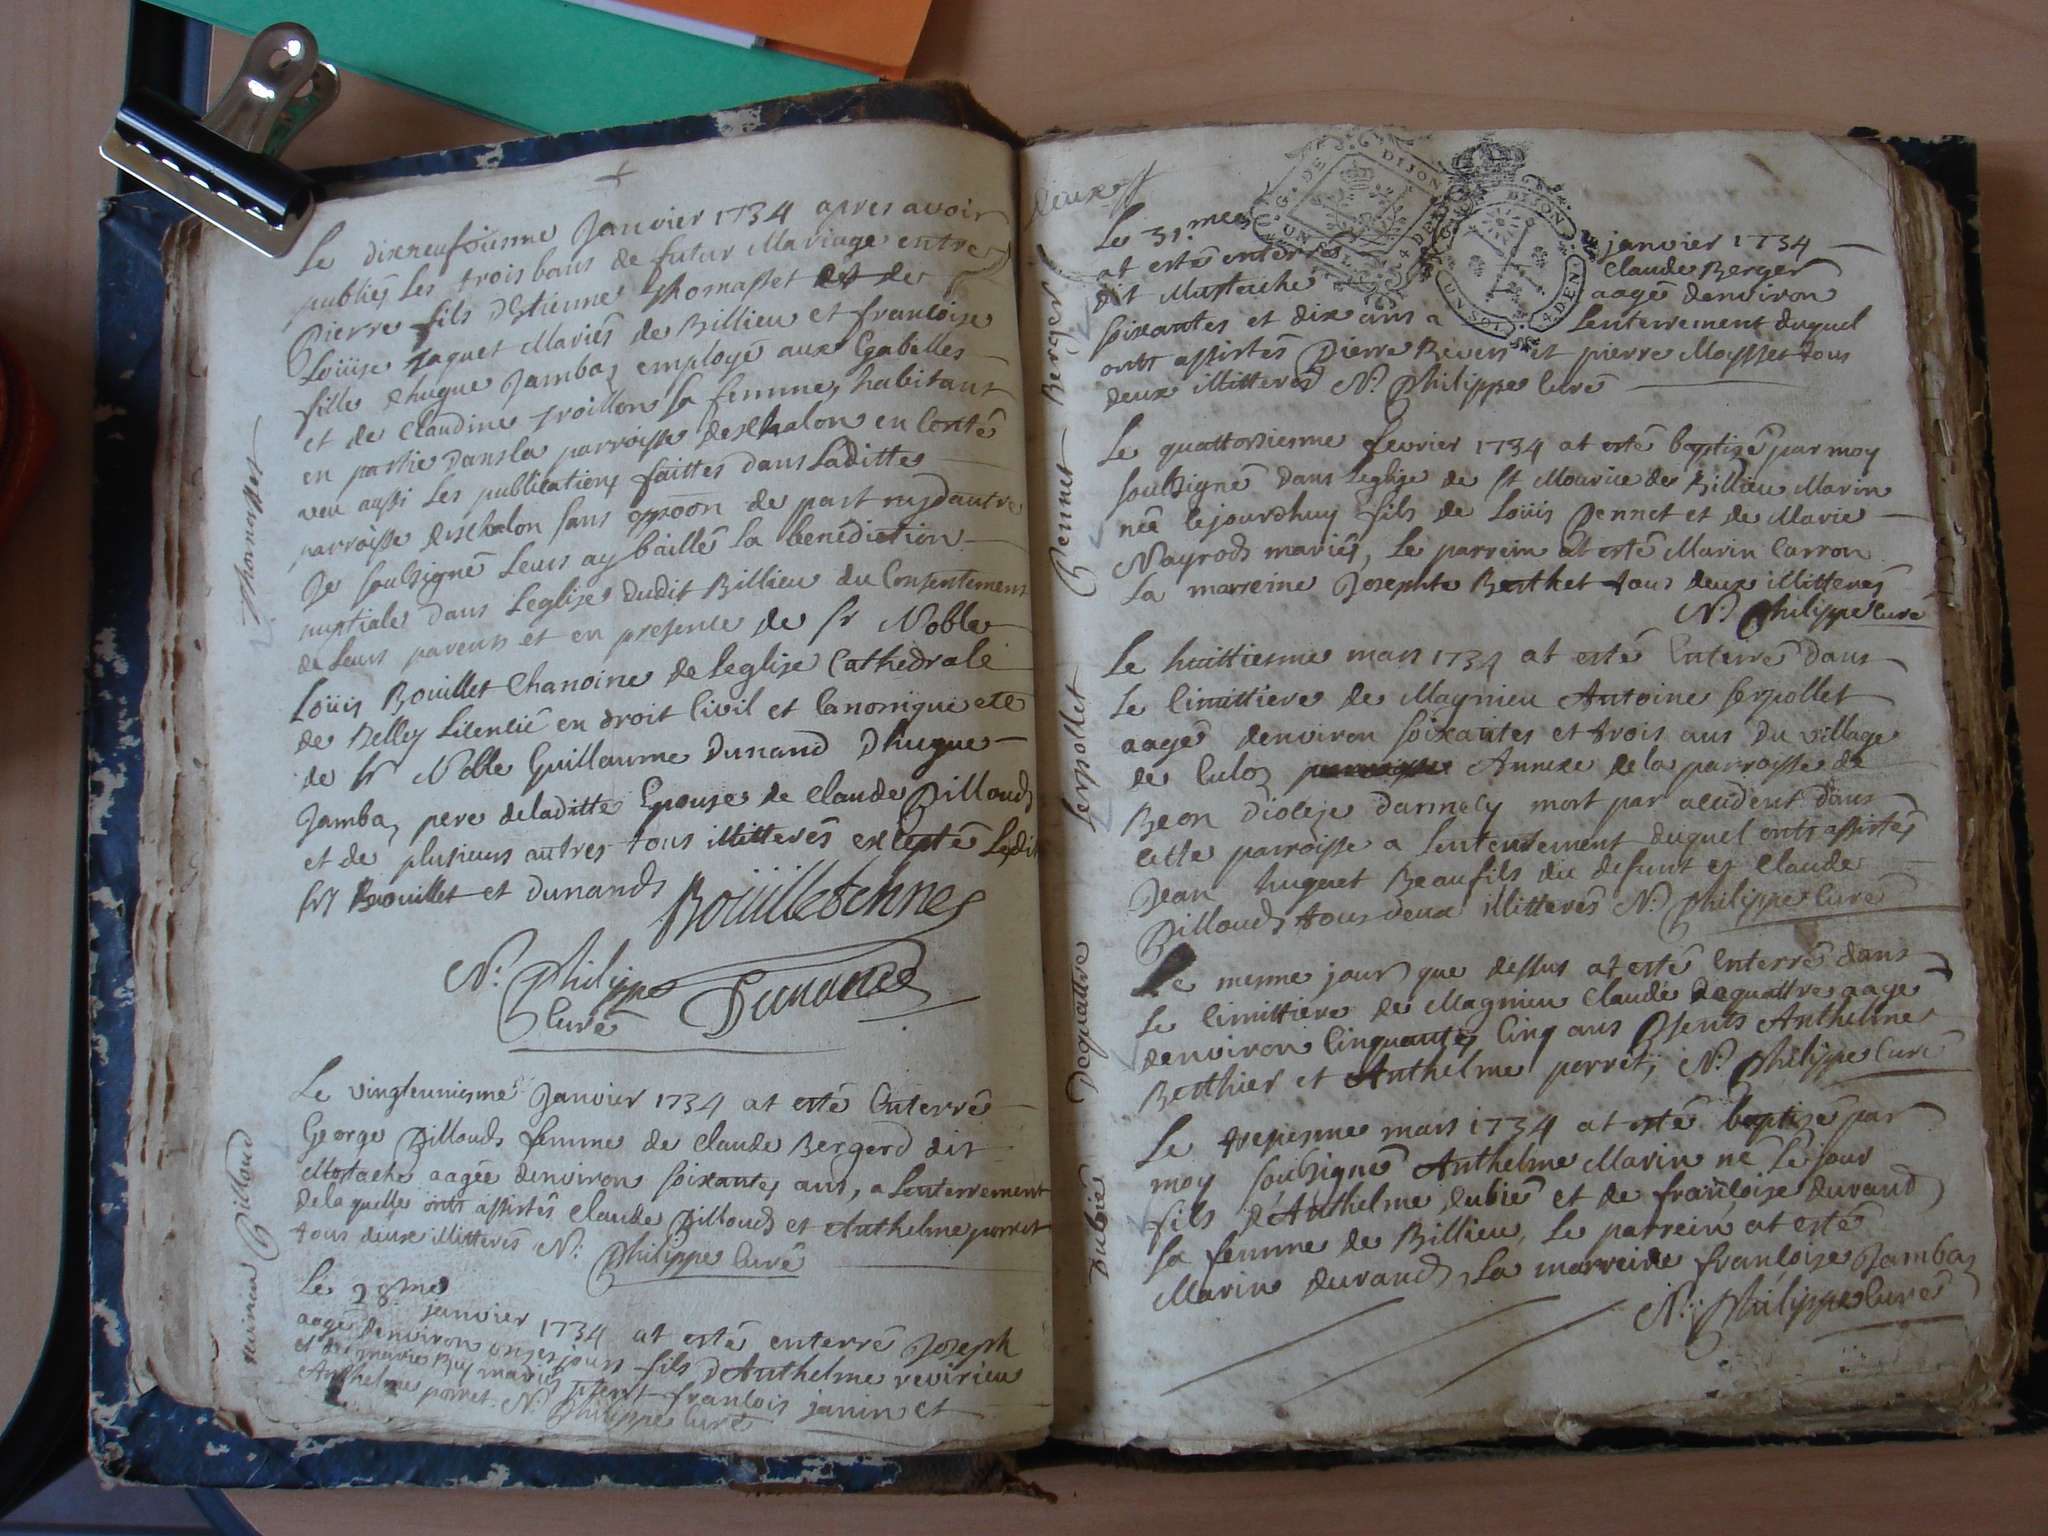 Le dixneufoiesme Janvier 1734 apres avoir
publiés Les trois bans de futur Mariage entre
Pierre fils d'Estienne Thomasset et de
Loüise Jaquet Mariés de Billieu et francoise
fille d'hugue Jambaz employé aux Gabelles
et de Claudine Troillon sa femme, habitant
en partie dans la parroisse deschalon en Conté
veu aussi Les publications faittes dans Laditte
parroisse deschalon sans oppoon de part ny dautre
Je soubsigné Leurs ay baillés La benediction
nuptiale dans Leglise dudit Billieu du Consentement
de Leurs parents et en presence de Sr Noble
Loüis Bouillet Chanoine de Leglise Cathedrale
de Belley Licentié en droit Civil et Canonique etc
de Sr Noble Guillaume Dunand D'hugue
Jambaz pere deladitte Epouse de Claude Billoud
et de plusieurs autres tous illitterés excepté Ledit
Srs Bouillet et Dunand
Bouillet
N: Philippe
Curé
Dunand
Le vingteuniesme Janvier 1734 at esté Enterré
George Billoud femme de Claude Berger dit
Mostache aagée denviron soixantes ans, a Lenterrement
dela quelle onts assistés Claude Billoud et Anthelme porret
tous deux illitterés N: Philippe Curé
Le 28me
janvier 1734 at esté enterré Joseph
aagé denviron onze jours fils d'Anthelme revirieu
et de marie Buy mariés psents francois janin et
Anthelme porret. N: Philippe Curé
Thomasset
Billoud
revirieu
deux
Le 31.me janvier 1734
at esté enterré Claude Berger
dit Mustache aagé denviron
soixantes et dix ans a Lenterrement duquel
onts assistés Pierre Revers et pierre Moysset tous
deux illitterés N: Philippe Curé
Le quattorsiesme fevrier 1734 at esté baptisé par moy
soubsigné dans Leglise de St Mourice de Billieu Marin
née lejourdhuy fils de Loüis Pennet et de Marie
Nayrod mariés, Le parrein at esté Marin Carron
La marreine Josephte Berthet tous deux illitterés
N: Philippe Curé
Le huittiesme mars 1734 at esté Enterré dans
Le Cimittiere de Magnieu Antoine serpollet
aagé denviron soixantes et trois ans du village
de Culoz Annexe de la parroisse de
Beon Diocese d'annecy mort par accident dans
cette parroisse a Lenterrement duquel onts assistés
Jean huguet Beaufils du defunt et Claude
Billoud tous deux illitterés N: Philippe Curé
Le mesme jour que dessus at esté Enterré dans
Le Cimittiere de Magnieu Claude Dequattre aagé
denviron Cinquantes Cinq ans Psents Anthelme
Berthier et Anthelme porret; N: Philippe Curé
Le trepiesme mars 1734 at esté baptisé par
moy soubsigné Anthelme Marin né Le jour
fils d'Anthelme Dubié et de francoise durand
sa femme de Billieu, Le parrein at esté
Marin durand, La marreine francoise Jambaz
N: Philippe Curé
Berger
Pennet
Serpollet
Dequattre
Dubié
G. DE DIJON
UN SOL 4 DEN
G. DE DIJON
UN SOL 4 DEN